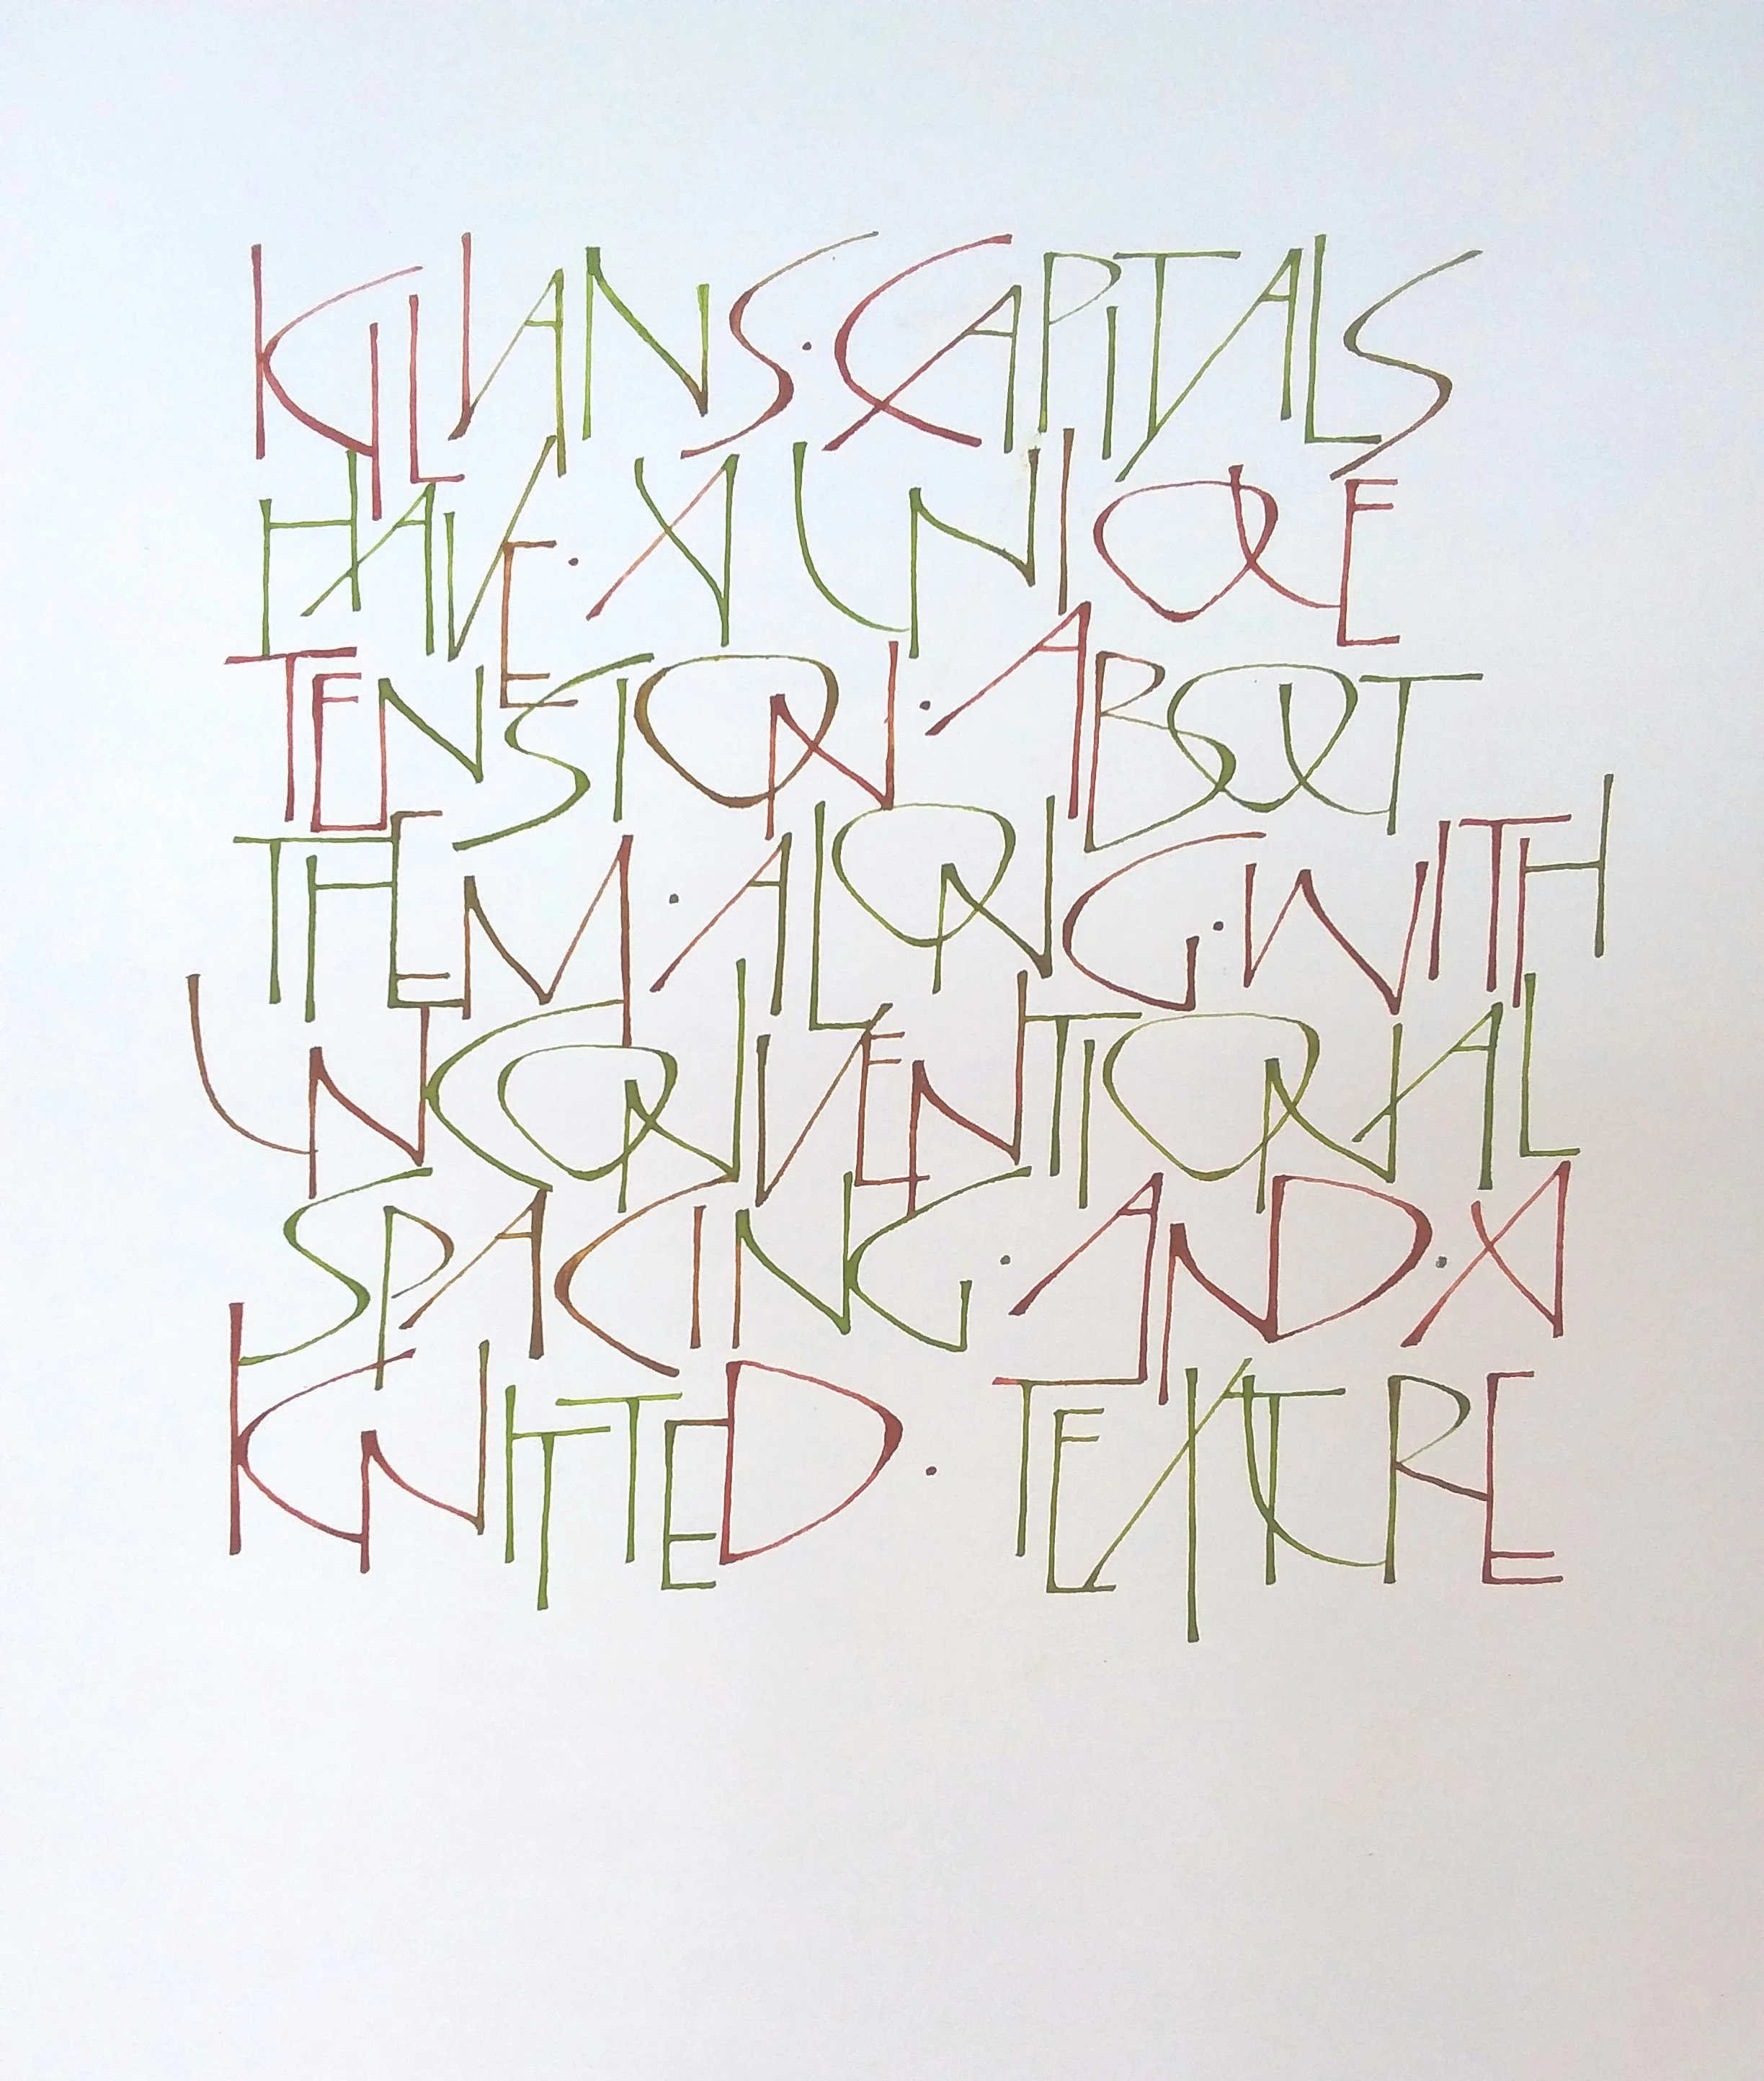 KILIANS·CAPITALS
HAVE·A UNIQUE
TENSION·ABOUT
THEM·ALONG·WITH
UNCONVENTIONAL
SPACING·AND·A
KNITTED·TEXTURE